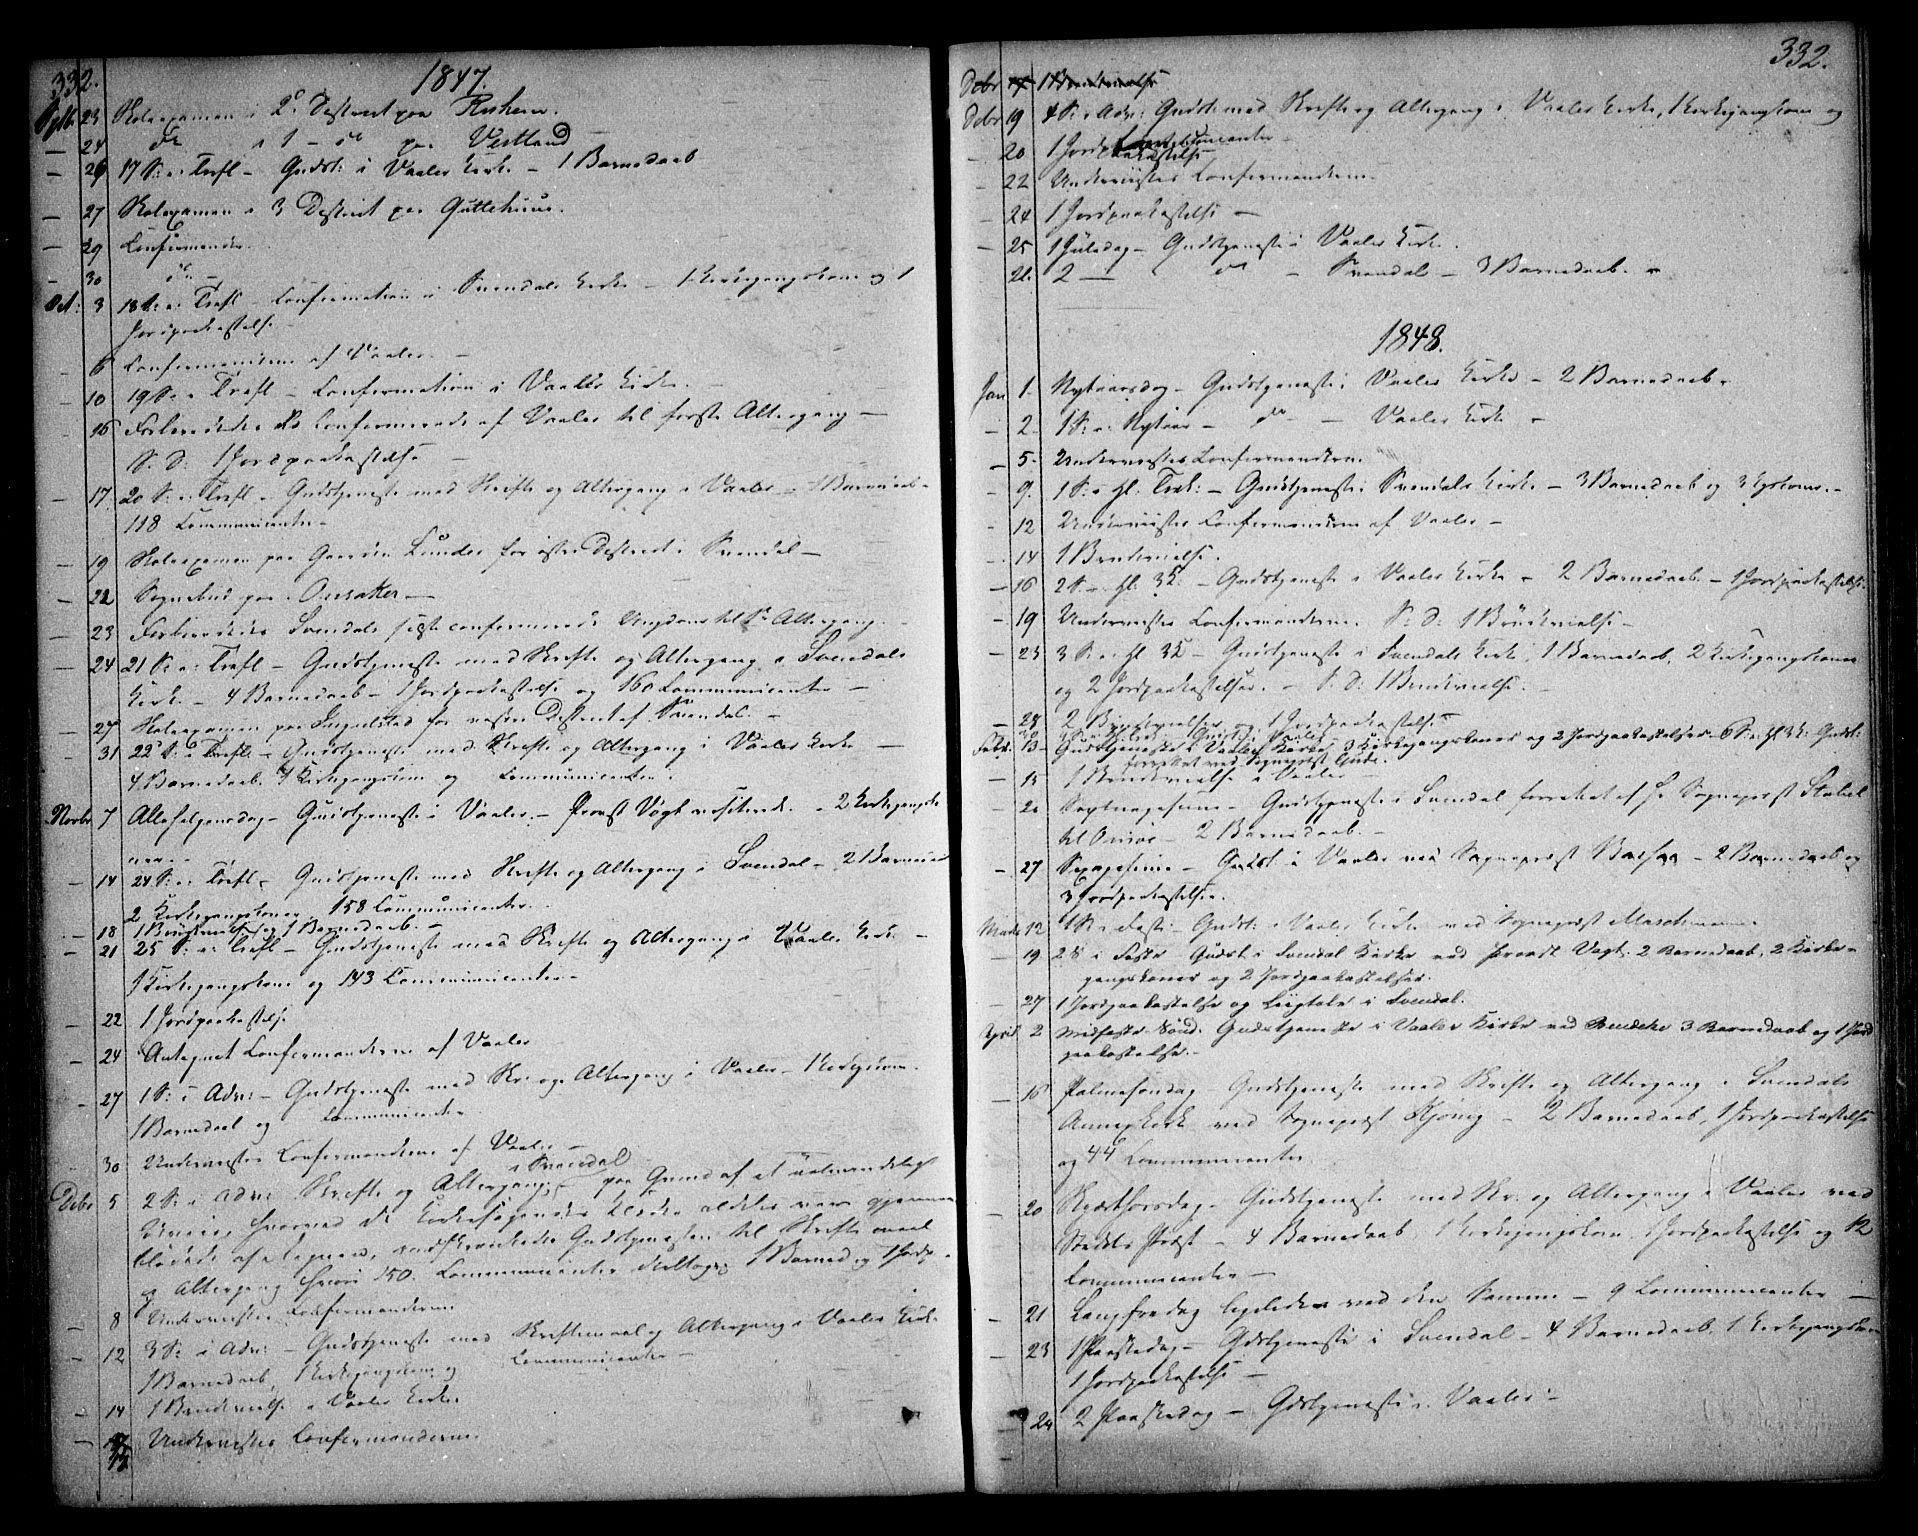 332.
1847.
Septb: 23 Skoleexamen i 2d Destrict paa Rishem.
— 24 do " 1 - do paa Vestland
— 26 17 S: e: Trefl - Gudst: i Vaaler Kirke - 1 Barnedaab
— 27 Skoleexamen i 3 Destrict paa Guttehuus.
— 29 Confirmander.
— 30 do —
Oct: 3 18 S: e: Trefl - Confirmation i Svendals Kirke - 1 Kirkegangskone og 1
Jordpaakastelse
— 6 Confirmanderne af Vaaler. —
— 10 19 S: e: Trefl - Confirmation i Vaaler Kirke. —
— 16 Forberedede de Confirmerede af Vaaler til første Altergang —
S. D: 1 Jordpaakastelse —
— 17 20 S: e: Trefl - Gudstjeneste med Skrifte og Altergang i Vaaler - 1 Barnedaab -
118 Communicanter -
— 19 Skoleexamen paa Gaarden Lunder for østre Destrict i Svendal —
— 22 Sognebud paa Onsaker —
— 23 Forberedede Svendals sidstconfirmerede Ungdom til 1ste Altergang. -
— 24 21 S: e: Trefl - Gudstjeneste med Skrifte og Altergang i Svendals
Kirke - 4 Barnedaab - 1 Jordpaakastelse og 160 Communicanter —
— 27 Skoleexamen paa Ingulstad for vestre Destrict af Svendal. —
— 31 22 S: e: Trefl. - Gudstjeneste med Skrifte og Altergang i Vaaler Kirke —
4 Barnedaab. 1 Kirkegangskone og Communicanter.
Novbr 7 Allehelgensdag - Gudstjeneste i Vaaler. - Provst Vogt visiterede. - 2 Kirkegangsko
nner -
— 14 24 S: e: Trefl - Gudstjeneste med Skrifte og Altergang i Svendal - 2 Barnedaab
2 Kirkegangskoner, 158 Communicanter.
— 18 1 Brudevielse og 1 Barnedaab. —
— 21 25 S: e: Trefl - Gudstjeneste med Skrifte og Altergang i Vaaler Kirke —
1 Kirkegangskone og 143 Communicanter -
— 22 1 Jordpaakastelse
— 24 Antegnet Confirmanderne af Vaaler
— 27 1 S: i Adv: - Gudstjeneste med Skr: og Altergang i Vaaler - 1 Kirkegkone.
1 Barnedaab og Communicanter
— 30 Underviiste Confirmanderne af Vaaler —
Debr 5 2 S: i Adv: Skrifte og Altergang i Svendal paa Grund af et ualmindeligt
Uveir, hvorved de Kirkesøgendes Klæder aldeles vare gjennem
blødede af Regnen, indskrænkedes Gudstjenesten til Skriftemaal
og Altergang hvori 150. Communicanter deeltoge; 1 Barned og 1 Jordp
— 8 Underviiste Confirmanderne
— 12 3 S: i Adv: - Gudstjeneste med Skriftemaal og Altergang i Vaaler Kirke
1 Barnedaab, 1 Kirkegangskone og Communicanter —
— 14 1 Brudevielse i Vaaler Kirke.
— 15 Underviiste Confirmanderne.
332.
Debr 17 1 Brudevielse
Debr 19 4 S: i Adv: Gudst: med Skrifte og Altergang i Vaaler Kirke, 1 Kirkegangskone og
Communicanter
— 20 1 Jordpaakastelse
— 22 Underviiste Confirmanderne.
— 24 1 Jordpaakastelse —
— 25 1 Juledag - Gudstjeneste i Vaaler Kirke.
— 26 2 — do - Svendal - 3 Barnedaab. -
1848.
Jan 1. Nytaarsdag - Gudstjeneste i Vaaler Kirke - 2 Barnedaab -
— 2. 1 S: e: Nytaar - do - Vaaler Kirke -
— 5. Underviiste Confirmanderne.
— 9. 1 S: e hl. Trek: - Gudstjeneste i Svendals Kirke - 3 Barnedaab og 3 Kgskoner. -
— 12 Underviiste Confirmanderne af Vaaler -
— 14 1 Brudevielse.
— 16 2 S. e. hl. 3K: - Gudstjeneste i Vaaler Kirke - 2 Barnedaab. - 1 Jordpaakastelse.
— 19 Underviiste Confirmanderne. S: D: 1 Brudevielse -
— 23 3 S: e: hl 3K - Gudstjeneste i Svendals Kirke, 1 Barnedaab, 2 Kirkegangskoner
og 2 Jordpaakastelser. - S. D: 1 Brudevielse. -
— 28 2 Brudevielser og 1 Jordpaakastelse
Febr. 13 - Gudstjeneste i Vaaler Kirke, 3 Kirkegangskoner og 2 Jordpaakastelser 6 S: e: hl 3K: Gudst:
forrettet ved Sognepræst Gude.
— 15 1 Brudevielse i Vaaler
— 20 Septuagesima - Gudstjeneste i Svendal forrettet af Hr Sognepræst Stabel
til Onsøe - 2 Barnedaab. -
— 27 Sexagesima - Gudst: i Vaaler ved Sognepræst - 2 Barnedaab og
3 Jordpaakastelse.
Marts 12 1 S: i Faste: - Gudst: i Vaaler Kirke ved Sognepræst Maschmann
— 19 2 S i Faste Gudst. i Svendal Kirke ved Provst Vogt. 2 Barnedaab, 2 Kirke-
gangskoner og 2 Jordpaakastelser.
— 27 1 Jordpaakastelse og Liigtale i Svendal.
April 2 Midfaste Sønd. Gudstjeneste i Vaaler Kirke ved Bendeke 3 Barnedaab og 1 Jord
paakastelse. -
— 16 Palmesøndag Gudstjeneste med Skrifte og Altergang i Svendals
Annexkirk ved Sognepræst - 2 Barnedaab, 1 Jordpaakastelse
og 44 Communicanter
— 20 Skjærthorsdag - Gudstjeneste med Skr: og Altergang i Vaaler ved
Stedets Præst - 4 Barnedaab 1 Kirkegangskone 1 Jordpaakastelse og 12
Communicanter —
— 21 Langfredag ligeledes ved den Samme - 9 Communicanter —
— 23 1 Paaskedag - Gudstjeneste i Svendal - 4 Barnedaab 1 Kirkegangskone
1 Jordpaakastelse —
— 24 2 Paaskedag - Gdstjeneste i Vaaler -